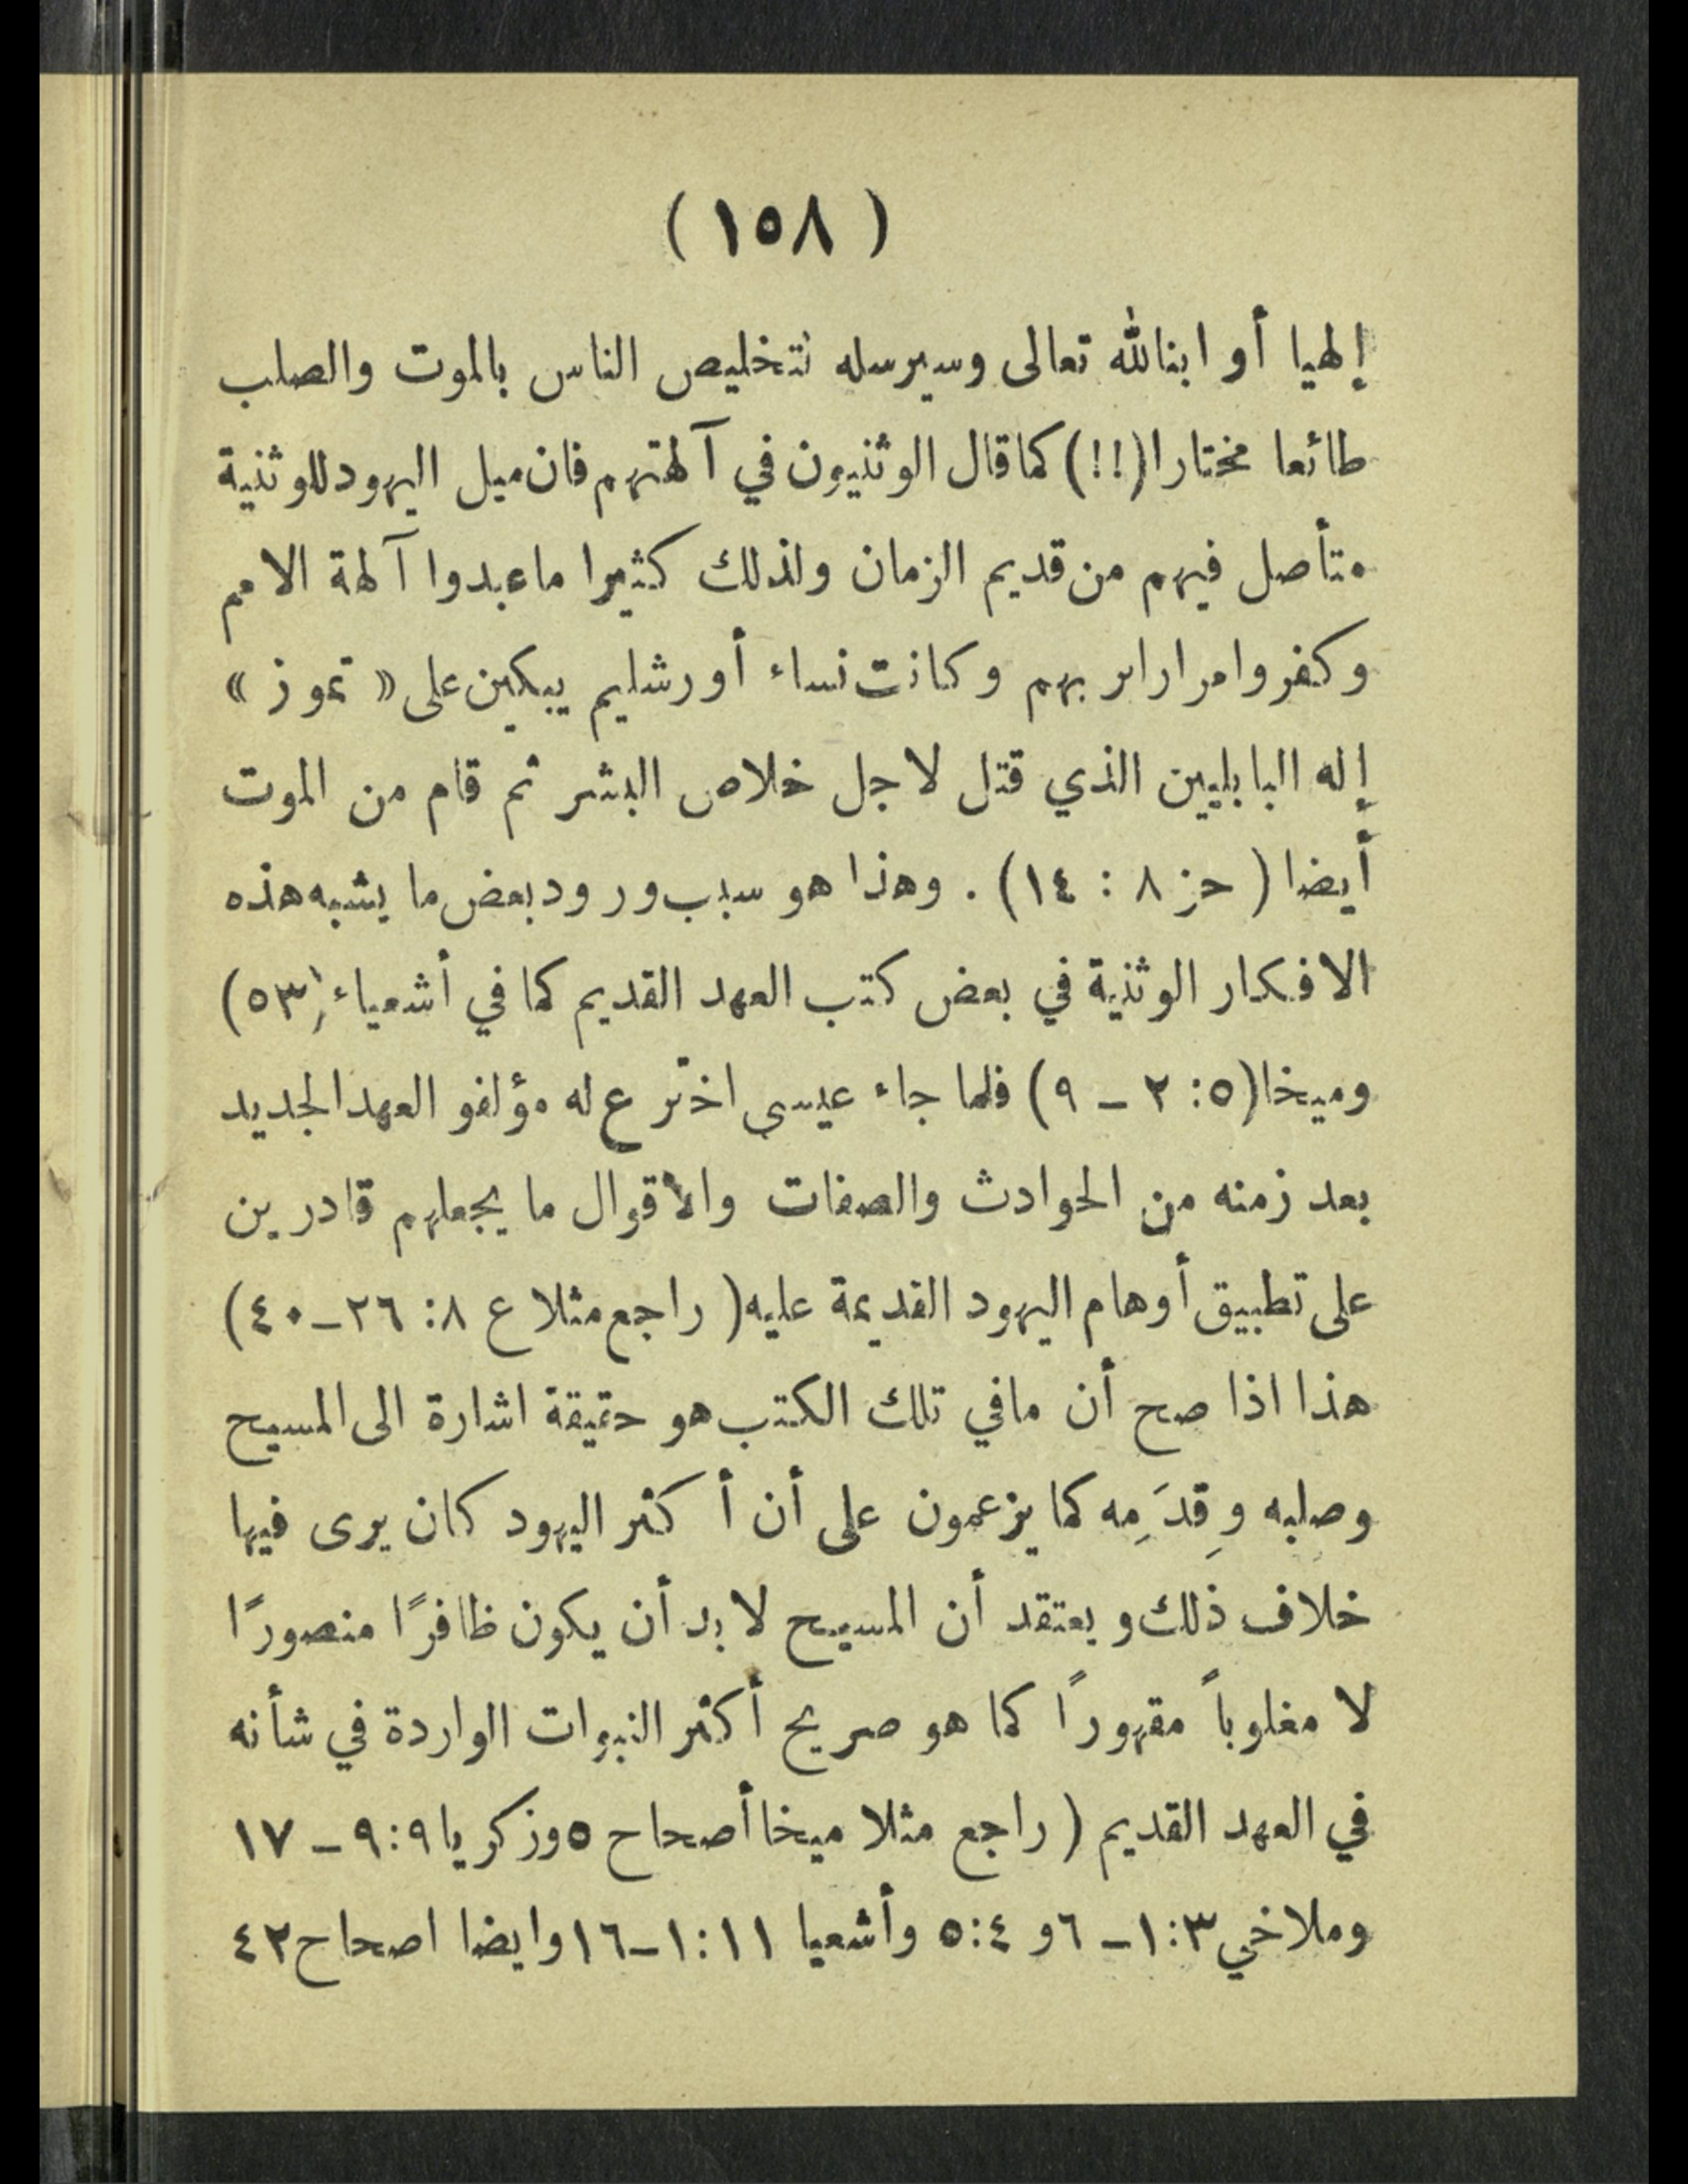 ( ١٥٨ )
إلهيا أو ابنا لله تعالى وسيرسله لتخليص الناس بالموت والصلب
طائعا مختارا (!!) كما قال الوثنيون في آلهتهم فان ميل اليهود للوثنية
متأصل فيهم من قديم الزمان ولذلك كثيرا ما عبدوا آلهة الامم
وكفروا مرارا بربهم وكانت نساء أورشليم يبكين على « تموز »
إله البابليين الذي قتل لاجل خلاص البشر ثم قام من الموت
أيضا ( حز ٨ : ١٤ ) . وهذا هو سبب ورود بعض ما يشبه هذه
الافكار الوثنية في بعض كتب العهد القديم كما في أشعياء (٥٣)
وميخا (٥: ٢ – ٩) فلما جاء عيسى اخترع له مؤلفو العهد الجديد
بعد زمنه من الحوادث والصفات والأقوال ما يجعلهم قادرين
على تطبيق أوهام اليهود القديمة عليه ( راجع مثلا ع ٨: ٢٦ – ٤٠)
هذا اذا صح أن ما في تلك الكتب هو حقيقة اشارة الى المسيح
وصلبه وقِدَمِه كما يزعمون على أن أكثر اليهود كان يرى فيها
خلاف ذلك ويعتقد أن المسيح لا بد أن يكون ظافرًا منصورًا
لا مغلوباً مقهورًا كما هو صريح أكثر النبوات الواردة في شأنه
في العهد القديم ( راجع مثلا ميخا أصحاح ٥ وزكريا ٩:٩ – ١٧
وملاخي ٣:١ – ٦ و ٤:٥ وأشعيا ١١:١–١٦ وايضا اصحاح ٤٢